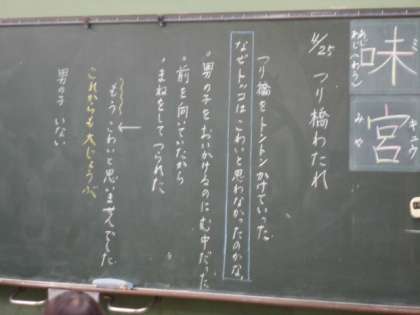 味
ミ
あじ
あじ(わう)
宮
キュウ
みや
4/25 つり橋わたれ
つり橋をトントンかけていった。
なぜトッコはこわいと思わなかったのかな
・男の子をおいかけるのにむ中だった
・前を向いていたから
・まねをしてつられた
もうこわいと思いませんでした
これからも大じょうぶ
男の子 いない